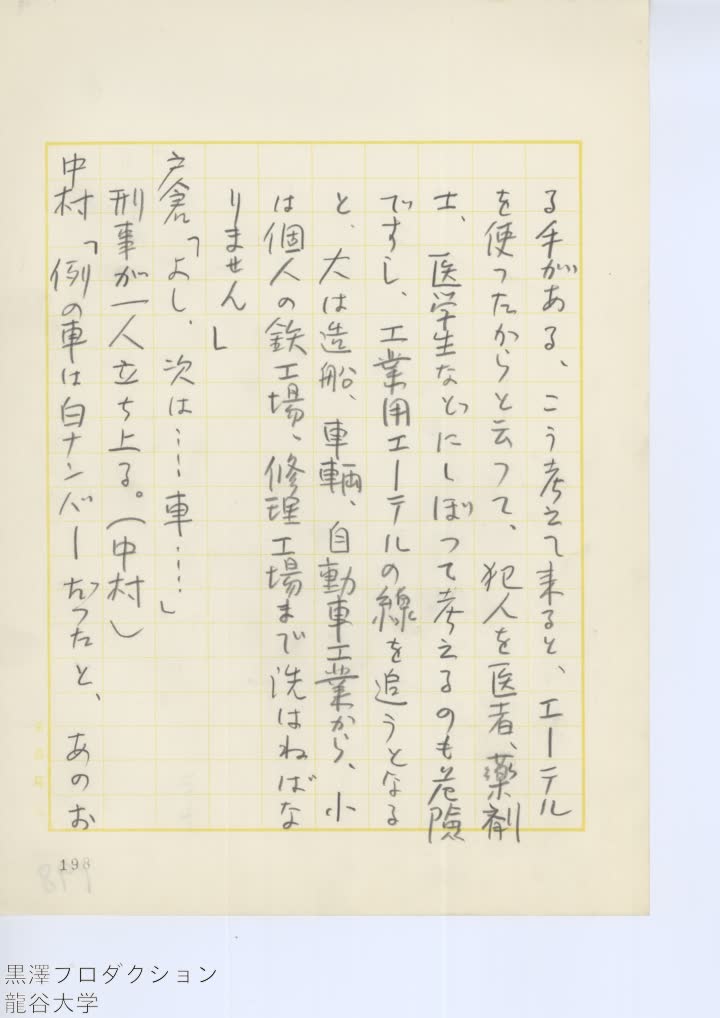 る手がある、こう考えて来ると、エーテル
を使つたからと云つて、犯人を医者、薬剤
士、医学生などにしぼつて考えるのも危険
ですし、工業用エーテルの線を追うとなる
と、大は造船、車輌、自動車工業から、小
は個人の鉄工場、修理工場まで洗はねばな
りません」
戸倉「よし、次は……車……」
刑事が一人立ち上る。(中村)
中村「例の車は白ナンバーだつたと、あのお
198
黒澤プロダクション
龍谷大学